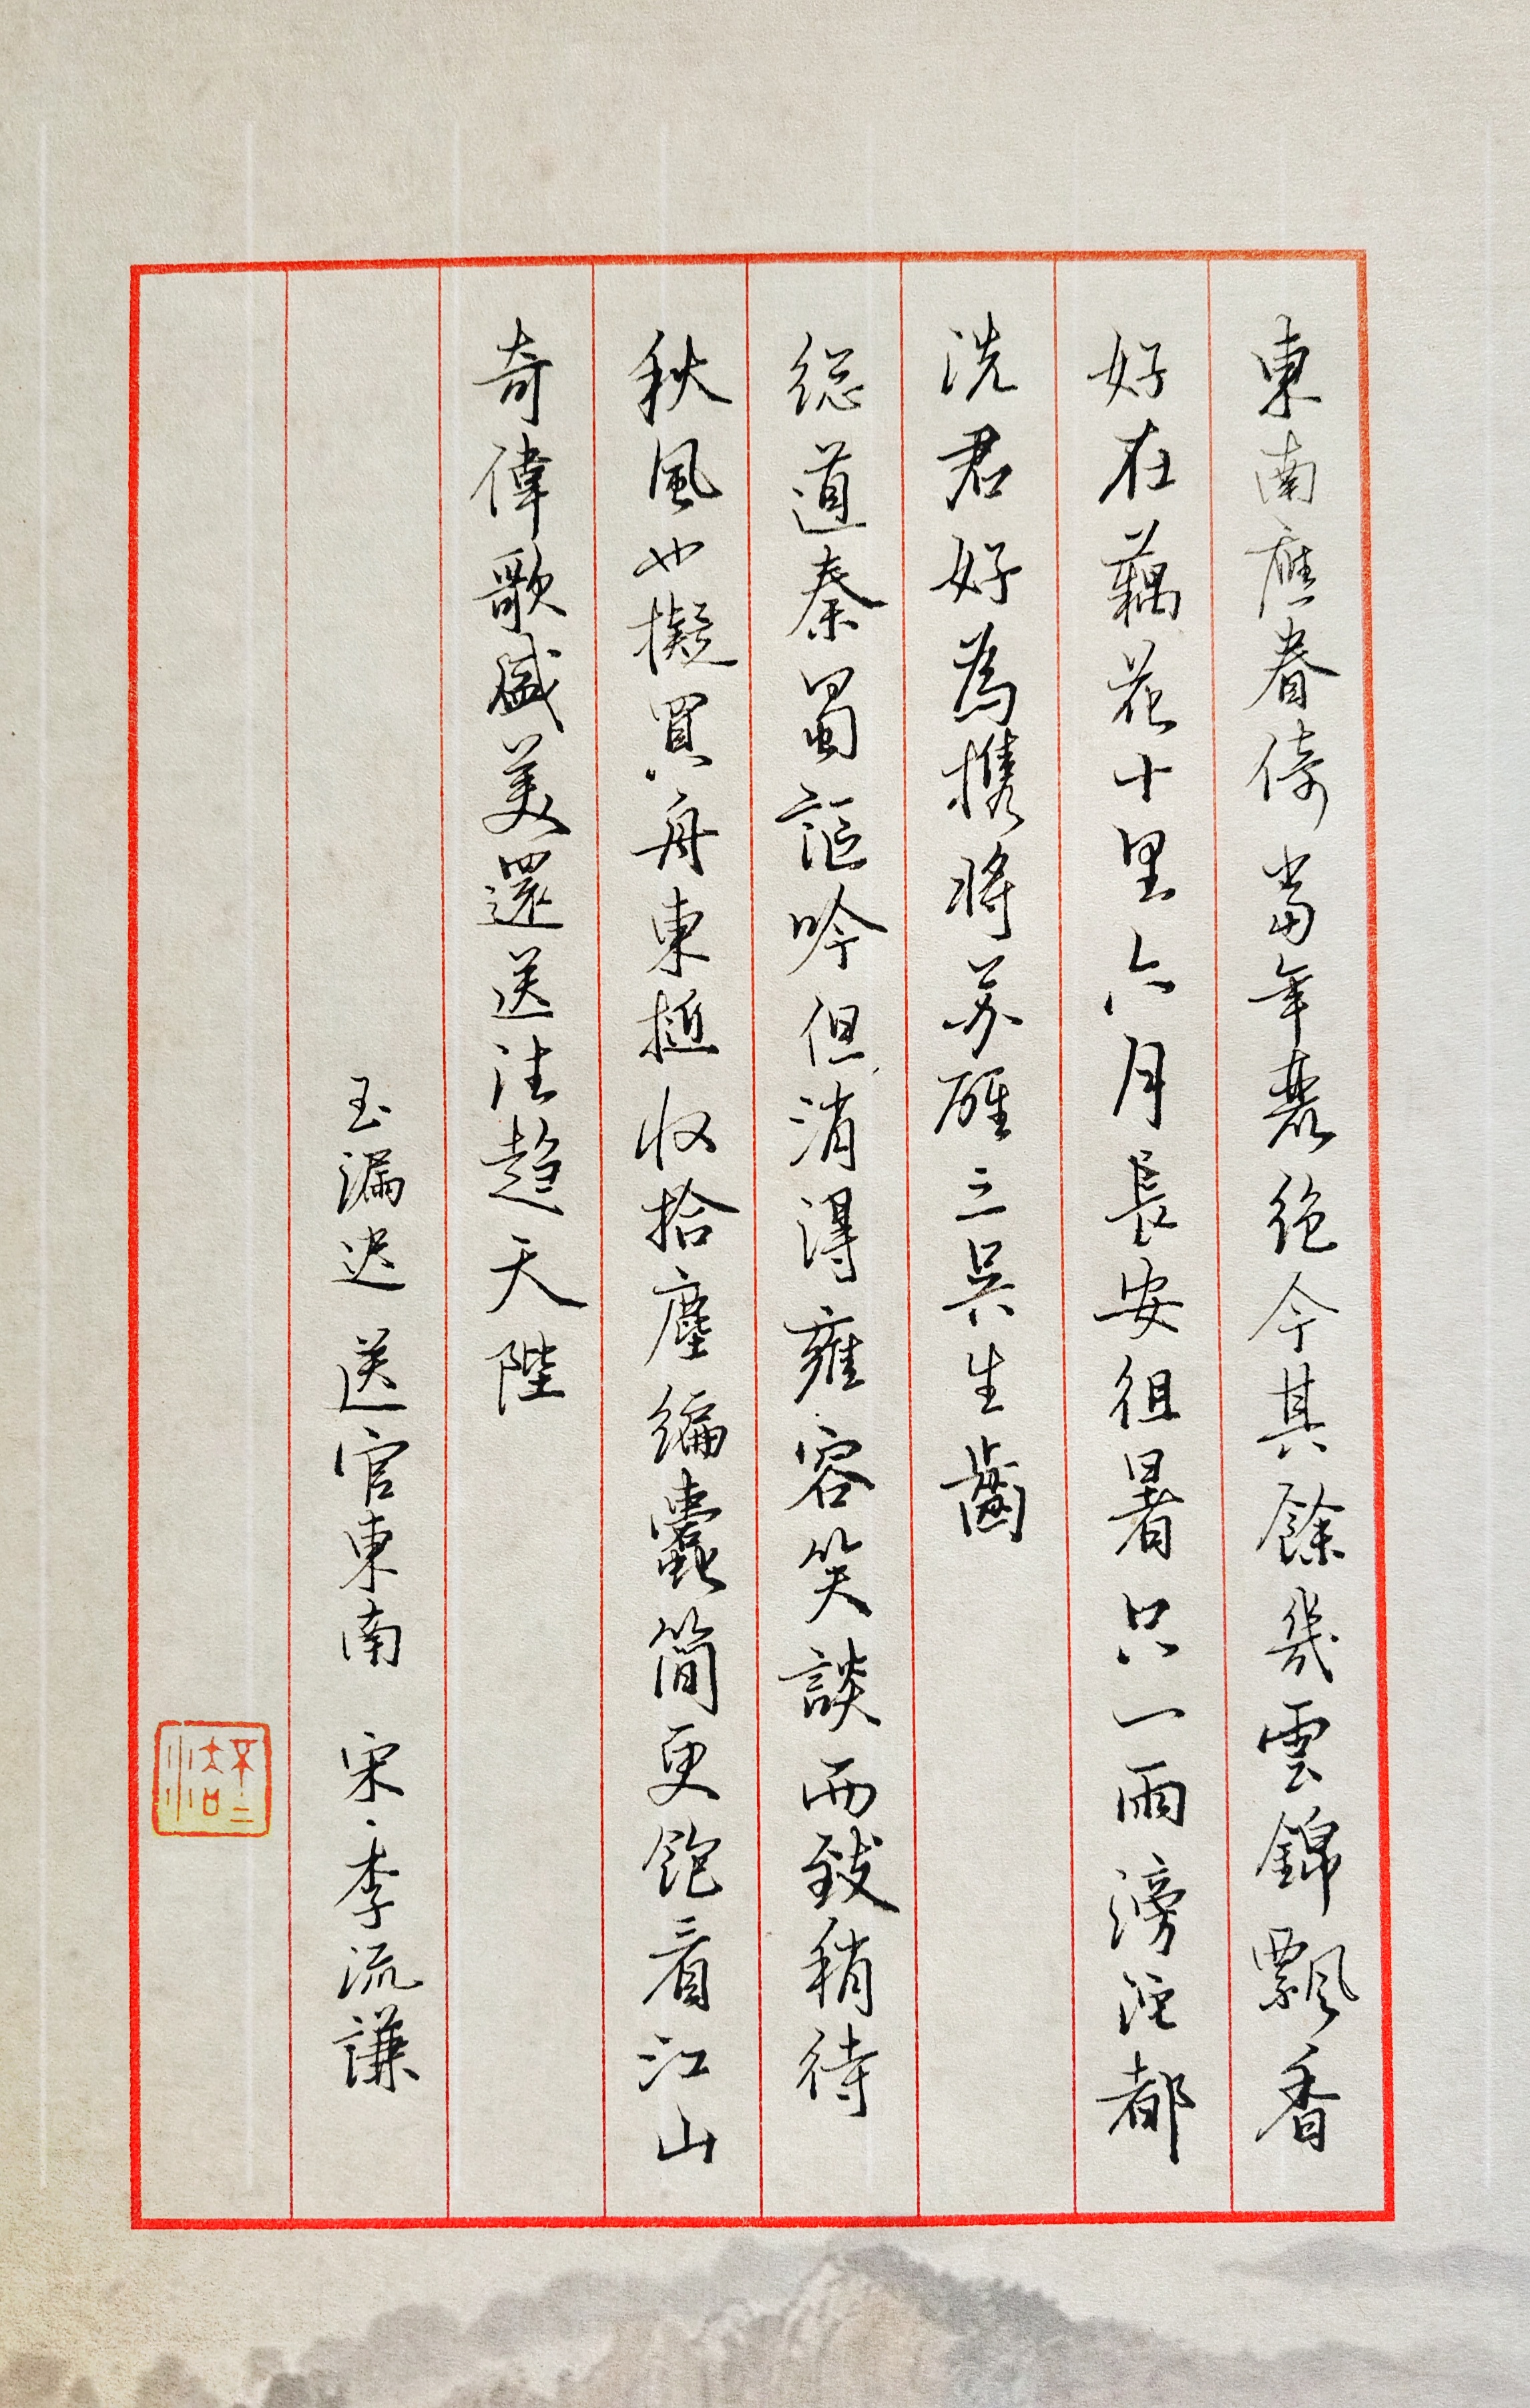 東南應眷倚當年叢絕今其餘幾雲錦飄香
好在藕花十里六月長安徂暑只一雨滂沱都
洗君好為攜將蘇醒三吳生齒
總道秦蜀謳吟但消得雍容笑談而致稍待
秋風也擬買舟東逝收拾塵編蠹簡更飽看江山
奇偉歌盛美還送法趨天陛
玉漏遲 送官東南 宋·李流謙